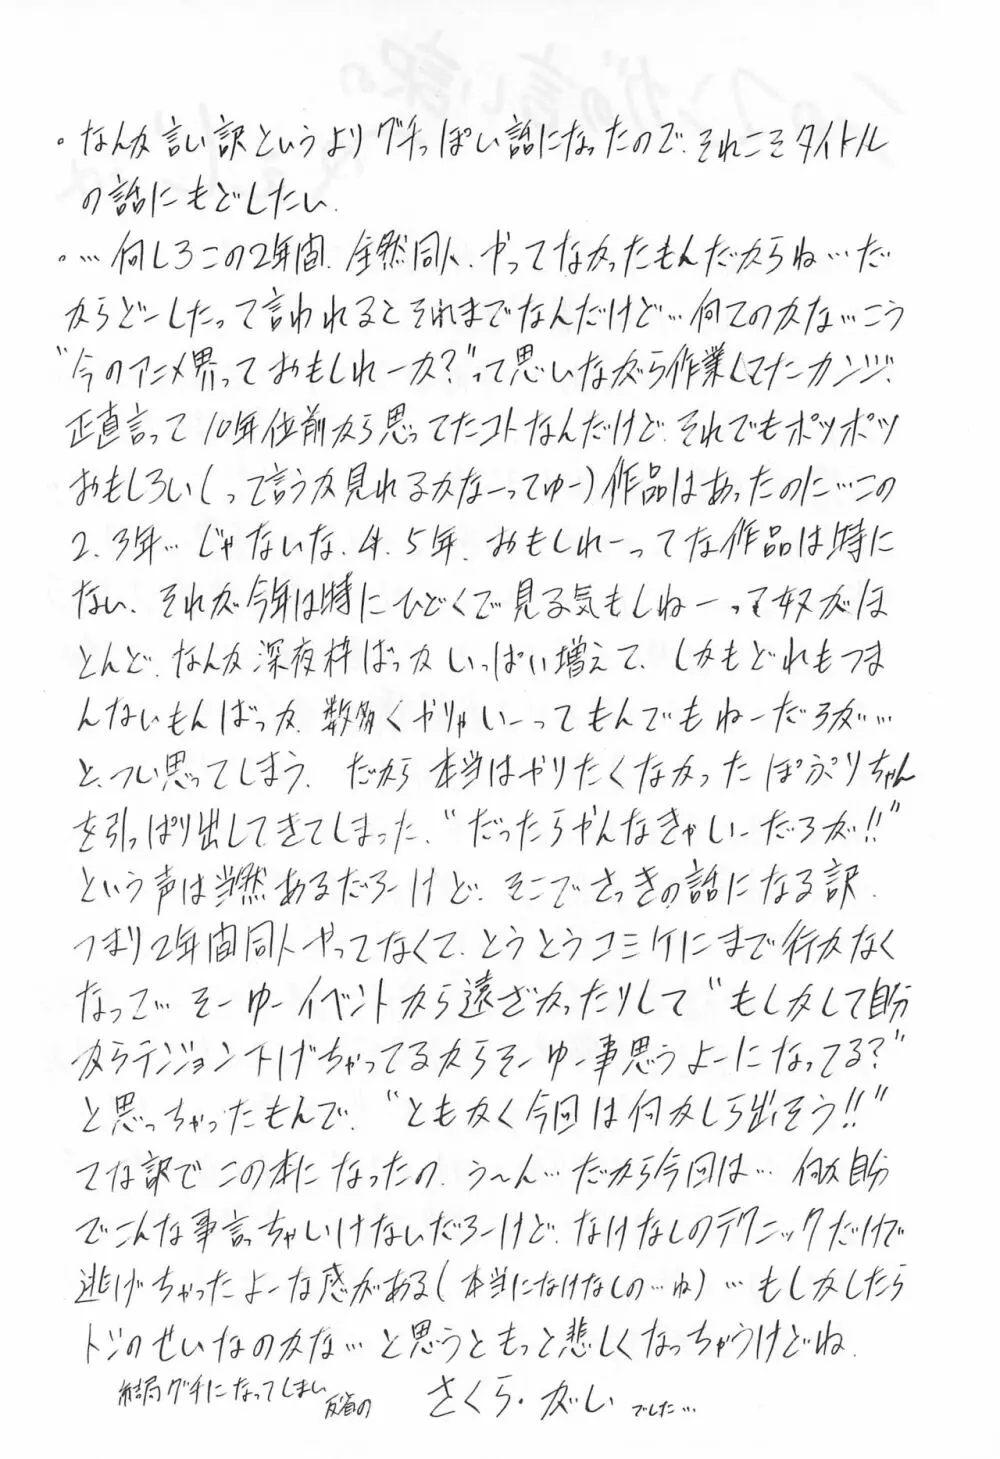 ・なんか言い訳というよりグチっぽい話になったので、それこそタイトル
の話にもどしたい.
・…何しろこの2年間、全然同人、やってなかったもんだからね…だ
からどーしたって言われるとそれまでなんだけど…何てのかな…こう
"今のアニメ界っておもしれーか?"って思いながら作業してたカンジ.
正直言って10年位前から思ってたコトなんだけど、それでもポツポツ
おもしろい(って言うか見れるかなーってゆー)作品はあったのに…この
2、3年…じゃないな、4、5年、おもしれーってな作品は特に
ない、それが今年は特にひどくで見る気もしねーって奴がほ
とんど、なんか深夜枠ばっかいっぱい増えて、しかもどれもつま
んないもんばっか、数多くやりゃいーってもんでもねーだろが…
と、つい思ってしまう. だから本当はやりたくなかったぱぷりちゃん
を引っぱり出してきてしまった、"だったらやんなきゃいーだろが!!"
という声は当然あるだろーけど、そこでさっきの話になる訳.
つまり2年間同人やってなくて、とうとうコミケにまで行かなく
なって…そーゆーイベントから遠ざかったりして"もしかして自分
からテンション下げちゃってるからそーゆー事思うよーになってる?"
と思っちゃったもんで、"ともかく今回は何かしら出そう!!"
てな訳でこの本になったの、う〜ん…だから今回は…何か自分
でこんな事言っちゃいけないだろーけど、なけなしのテクニックだけで
逃げちゃったよーな感がある(本当になけなしの…ね)…もしかしたら
トシのせいなのかな…と思うともっと悲しくなっちゃうけどね.
結局グチになってしまい
反省の さくら・がしい でした…